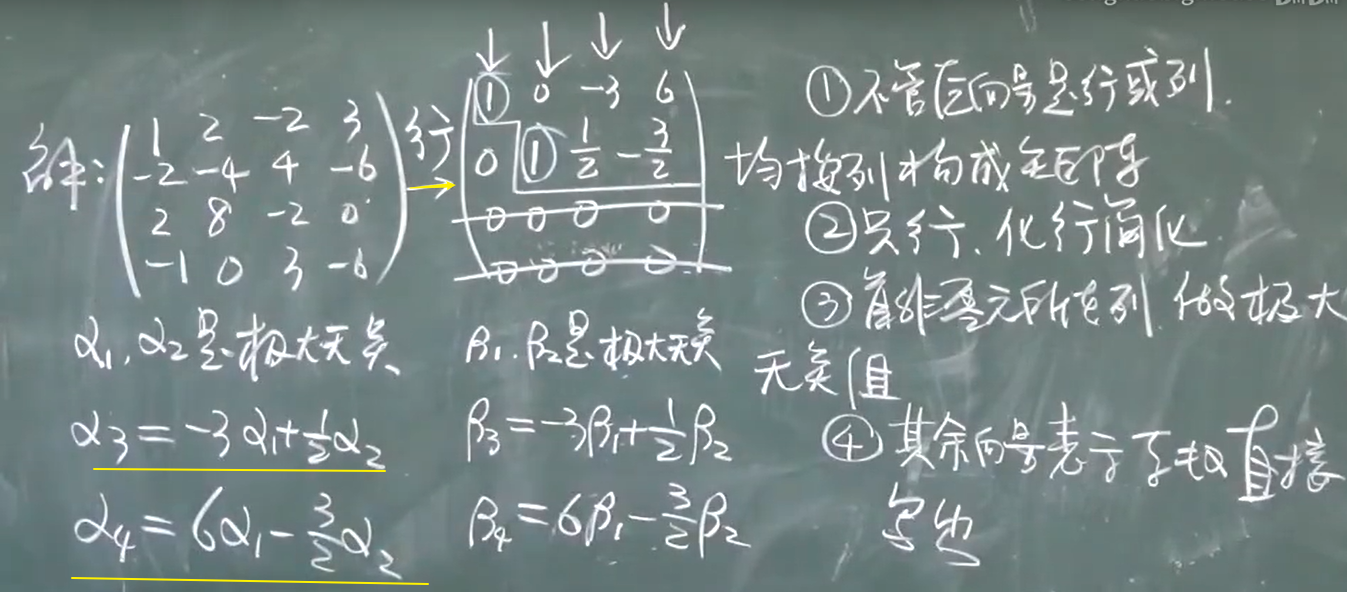 解: ( 1 2 -2 3 ; -2 -4 4 -6 ; 2 8 -2 0 ; -1 0 3 -6 ) 行→ ( 1 0 -3 6 ; 0 1 1/2 -3/2 ; 0 0 0 0 ; 0 0 0 0 )
α₁, α₂是极大无关
α₃=-3α₁+½α₂
α₄=6α₁-3/2α₂
β₁, β₂是极大无关
β₃=-3β₁+½β₂
β₄=6β₁-3/2β₂
①不管向量是行或列.
均按列构成矩阵
②只行、化行简化
③首非零元所在列.做极大
无关组
④其余向量表示系数直接
写出